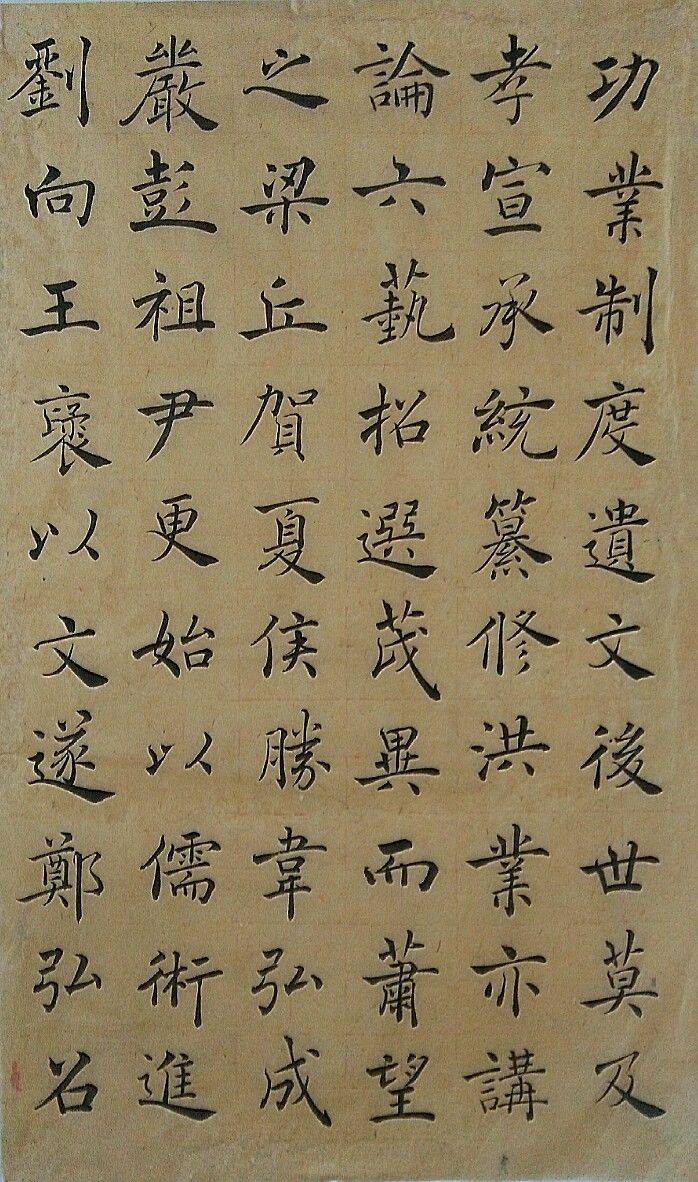 功業制度遺文後世莫及
孝宣承統纂修洪業亦講
論六藝招選茂異而蕭望
之梁丘賀夏侯勝韋弘成
嚴彭祖尹更始以儒術進
劉向王襃以文遂鄭弘召